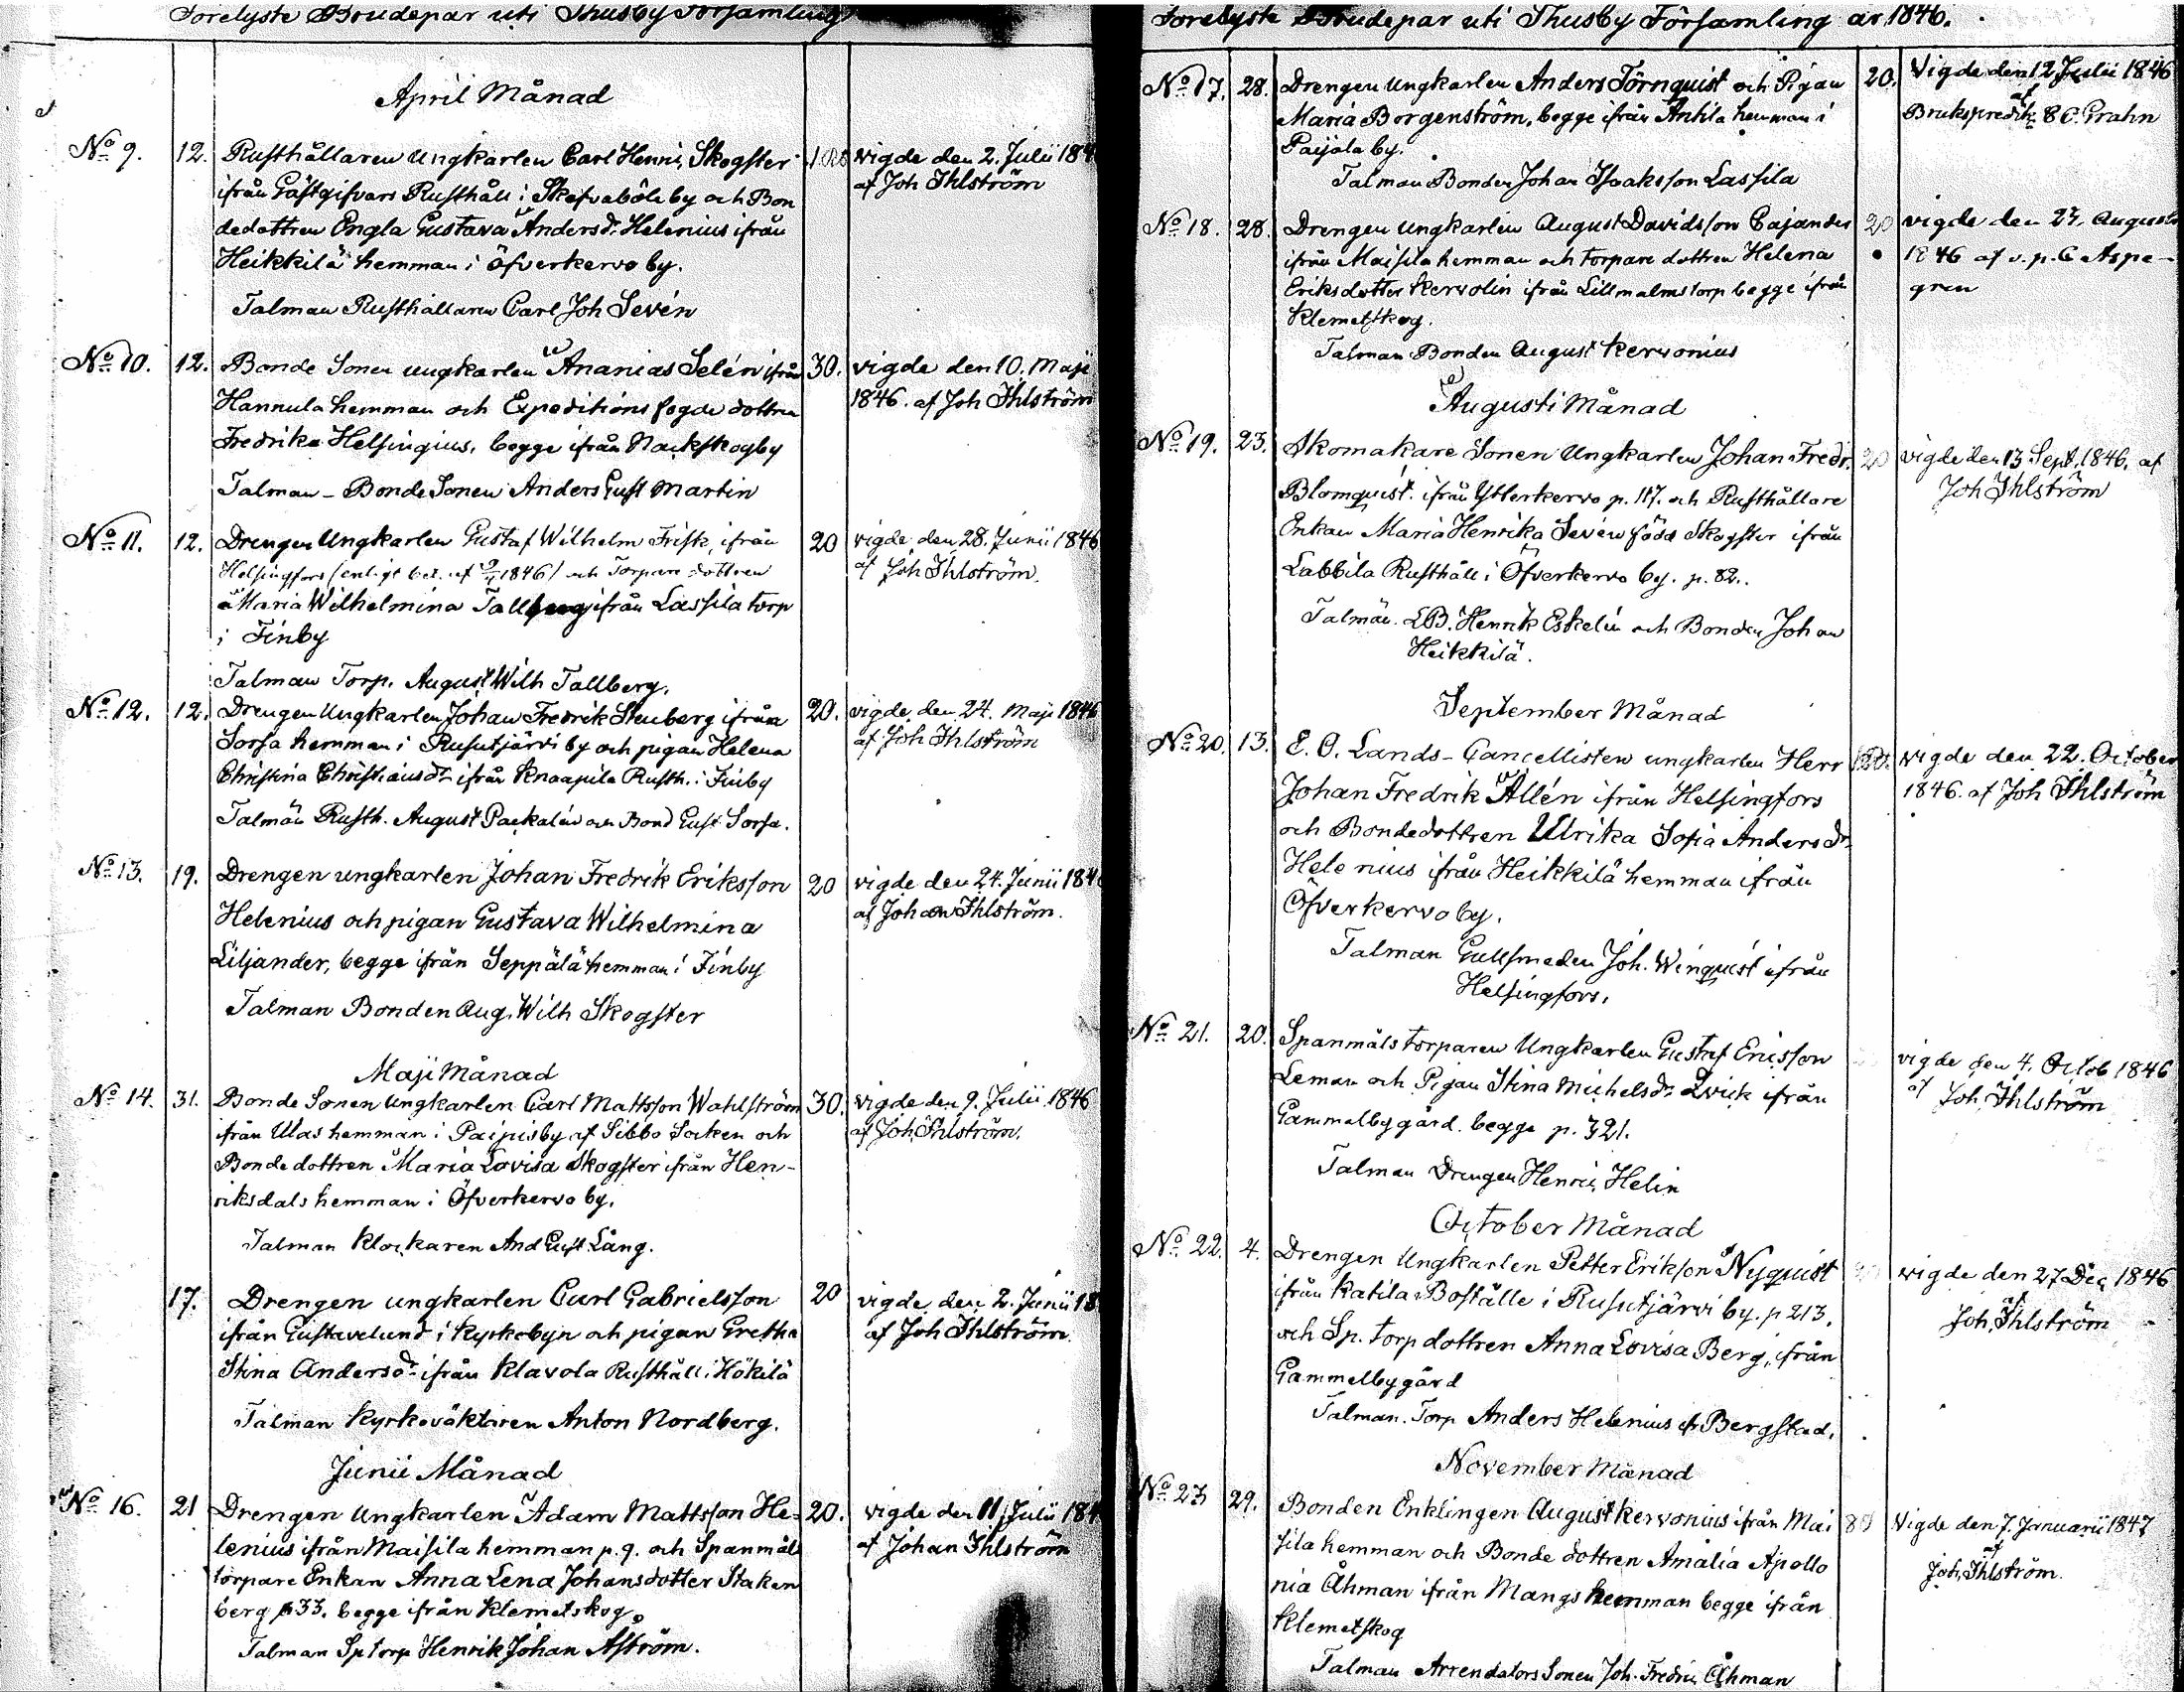 Förelyste Brudepar uti Thusby Församling
April Månad
No 9. 12. Rusthållaren Ungkarlen Carl Henric Skogster 1 Rb vigde den 2. Julii 184
ifrån Gästgifvars Rusthåll i Skafvaböle by och Bon af Joh Ihlström
dedottren Engla Gustava Andersdr Helenius ifrån
Heikkilä hemman i Öfverkervo by.
Talman Rusthållaren Carl Joh Sevén
No 10. 12. Bonde Sonen ungkarlen Ananias Selén ifrån 30. vigde den 10. Maji
Hannula hemman och Expeditions fogde dottren 1846. af Joh Ihlström
Fredrika Helsingius, begge ifrån Nackskogby
Talman - Bonde Sonen Anders Gust Martin
No 11. 12. Drengen Ungkarlen Gustaf Wilhelm Frisk, ifrån 20 vigde den 28. Junii 1846
Helsingfors (enligt bet. af 1846) och Torpare dottren af Joh Ihlström.
Maria Wilhelmina Tallberg ifrån Lassila torp
i Finby
Talman Torp. August Wilh Tallberg.
No 12. 12. Drengen Ungkarlen Johan Fredrik Stenberg ifrån 20. vigde den 24. Maji 1846
Sorsa hemman i Rusutjärvi by och pigan Helena af Joh Ihlström
Christina Christiansdr ifrån Knaapila Rusth. i Finby
Talmän Rusth. August Packalén och Bond Gust Sorsa.
No 13. 19. Drengen ungkarlen Johan Fredrik Eriksson 20 vigde den 24. Junii 184
Helenius och pigan Gustava Wilhelmina af Johan Ihlström.
Liljander, begge ifrån Seppälä hemman i Finby
Talman Bonden Aug. Wilh Skogster
Maji Månad
No 14. 31. Bonde Sonen Ungkarlen Carl Mattsson Wahlström 30. vigde den 9. Julii 1846
ifrån Ulas hemman i Paipisby af Sibbo Socken och af Joh Ihlström.
Bonde dottren Maria Lovisa Skogster ifrån Hen-
riksdals hemman i Öfverkervo by.
Talman Klockaren And Gust Lång.
17. Drengen ungkarlen Carl Gabrielsson 20 vigde den 2. Junii 18
ifrån Gustavelund i Kyrkobyn och pigan Gretha af Joh Ihlström.
Stina Andersdr ifrån Klavola Rusthåll i Hökilä
Talman Kyrkoväktaren Anton Nordberg.
Junii Månad
No 16. 21 Drengen Ungkarlen Adam Mattsson He- 20. vigde den 11 Julii 184
lenius ifrån Maisila hemman p. 9. och Spanmåls af Johan Ihlström
torpare Enkan Anna Lena Johansdotter Staken
berg p 33. begge ifrån Klemetskog
Talman Sp torp Henrik Johan Åström.
Förelyste Brudepar uti Thusby Församling år 1846.
No 17. 28. Drengen Ungkarlen Anders Törnquist och Pigan 20. Vigde den 12 Julii 1846
Maria Borgenström, begge ifrån Anttila hemman i af Brukspredik: E C. Grahn
Paijala by.
Talman Bonden Johan Isaksson Lassila
No 18. 28. Drengen ungkarlen August Davidsson Cajander 20 vigde den 23. Augusti
ifrån Maisila hemman och torpare dottren Helena 1846 af v. p. C Aspe-
Eriksdotter Kervolin ifrån Lillmalms torp begge ifrån gren
Klemetskog.
Talman Bonden August Kervonius
Augusti Månad
No 19. 23. Skomakare Sonen Ungkarlen Johan Fredr. 20 vigde den 13 Sept. 1846. af
Blomquist. ifrån Ytterkervo p. 117. och Rusthållare Joh Ihlström
Enkan Maria Henrika Sevén född Skogster ifrån
Labbila Rusthåll i Öfverkervo by. p. 82..
Talmän. L B. Henrik Eskelin och Bonden Johan
Heikkilä.
September Månad
No 20. 13. E. O. Lands-Cancellisten ungkarlen Herr 1 Rb. vigde den 22. October
Johan Fredrik Allén ifrån Helsingfors 1846. af Joh Ihlström
och Bondedottren Ulrika Sofia Andersdr.
Helenius ifrån Heikkilä hemman ifrån
Öfverkervo by.
Talman Gullsmeden Joh. Winquist ifrån
Helsingfors.
No 21. 20. Spanmåls torparen Ungkarlen Gustaf Ericsson vigde den 4. Octob 1846
Leman och Pigan Stina Michelsdr Qvick ifrån af Joh Ihlström
Gammelby gård. begge p. 321.
Talman Drengen Henric Helin
October Månad
No 22. 4. Drengen Ungkarlen Petter Erikson Nyquist vigde den 27 Dec 1846
ifrån Katila Boställe i Rusutjärvi by. p 213. af Joh. Ihlström
och Sp. torp dottren Anna Lovisa Berg, ifrån
Gammelby gård
Talman. Torp Anders Helenius fr Bergstad.
November Månad
No 23 29. Bonden Enklingen August Kervonius ifrån Mai 80 Vigde den 7. Januarii 1847
sila hemman och Bonde dottren Amalia Apollo af Joh. Ihlström.
nia Åhman ifrån Mangs hemman begge ifrån
Klemetskog
Talman Arrendators Sonen Joh. Fredric Åhman